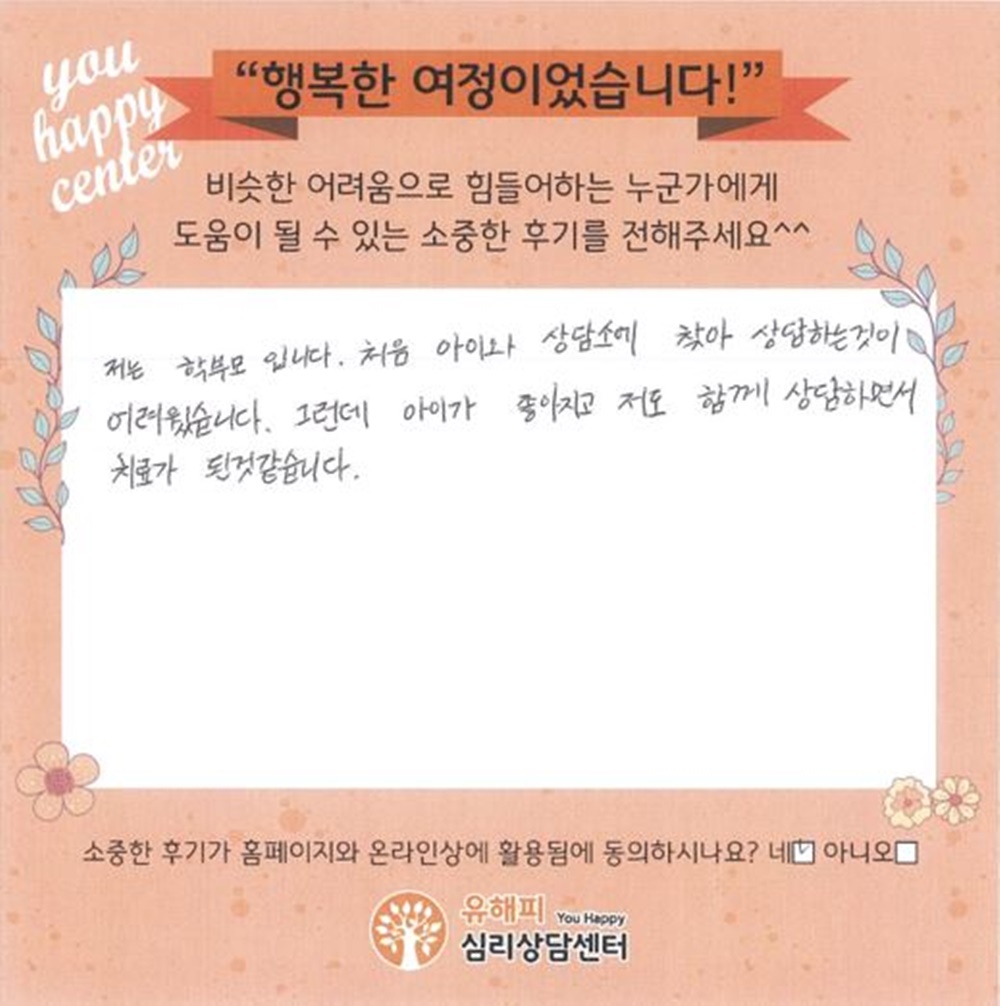 you
happy
center
“행복한 여정이었습니다!”
비슷한 어려움으로 힘들어하는 누군가에게
도움이 될 수 있는 소중한 후기를 전해주세요^^
저는 학부모 입니다. 처음 아이와 상담소에 찾아 상담하는것이
어려웠습니다. 그런데 아이가 좋아지고 저도 함께 상담하면서
치료가 된것같습니다.
소중한 후기가 홈페이지와 온라인상에 활용됨에 동의하시나요? 네☑ 아니오☐
유해피 You Happy
심리상담센터